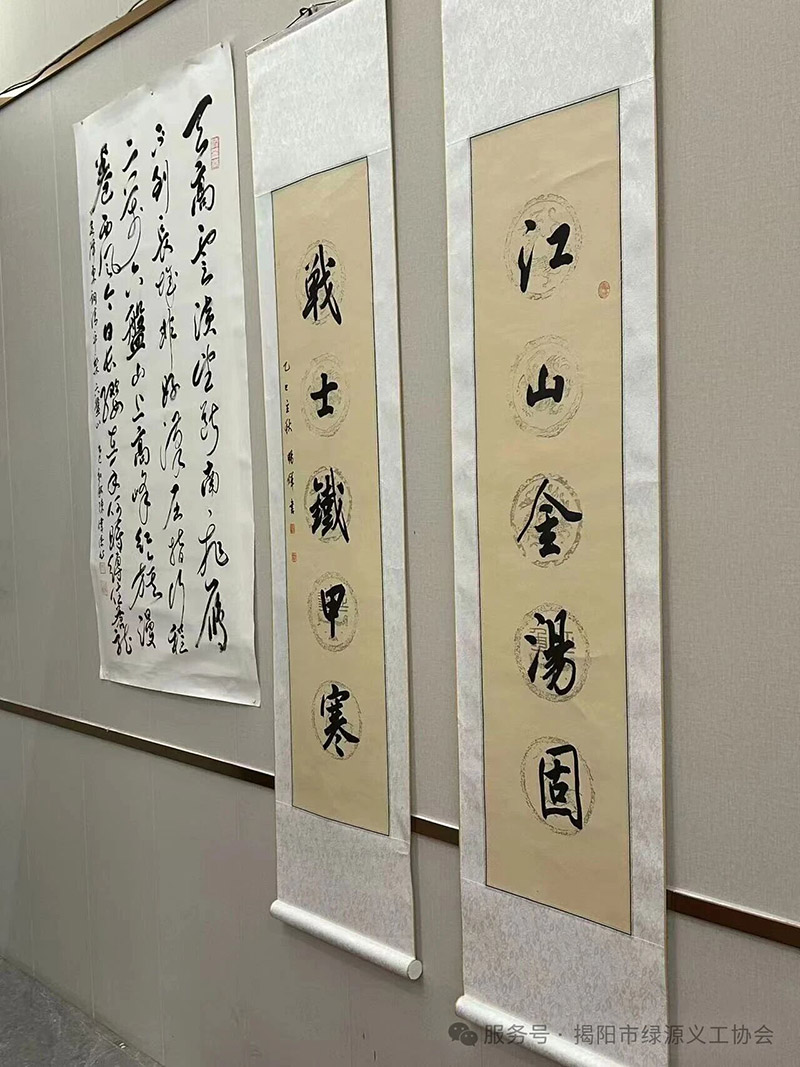 江山金湯固
戰士鐵甲寒
乙巳立秋 書
天高雲淡望斷南飛雁
不到長城非好漢屈指行程
二萬六盤山上高峰紅旗漫
卷西風今日長纓在手何時縛住蒼龍
毛澤東詞清平樂六盤山
服务号·揭阳市绿源义工协会